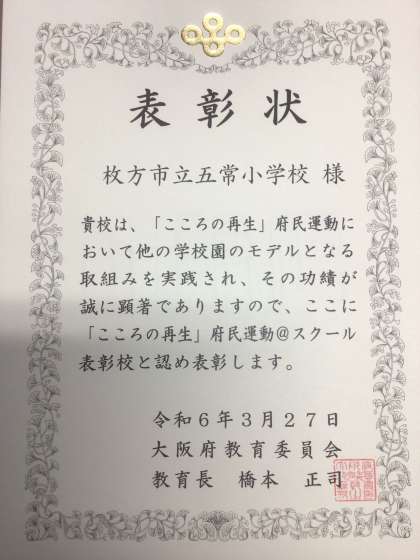 表彰状
枚方市立五常小学校 様
貴校は、「こころの再生」府民運動に
おいて他の学校園のモデルとなる
取組みを実践され、その功績が
誠に顕著でありますので、ここに
「こころの再生」府民運動@スクール
表彰校と認め表彰します。
令和6年3月27日
大阪府教育委員会
教育長 橋本 正司